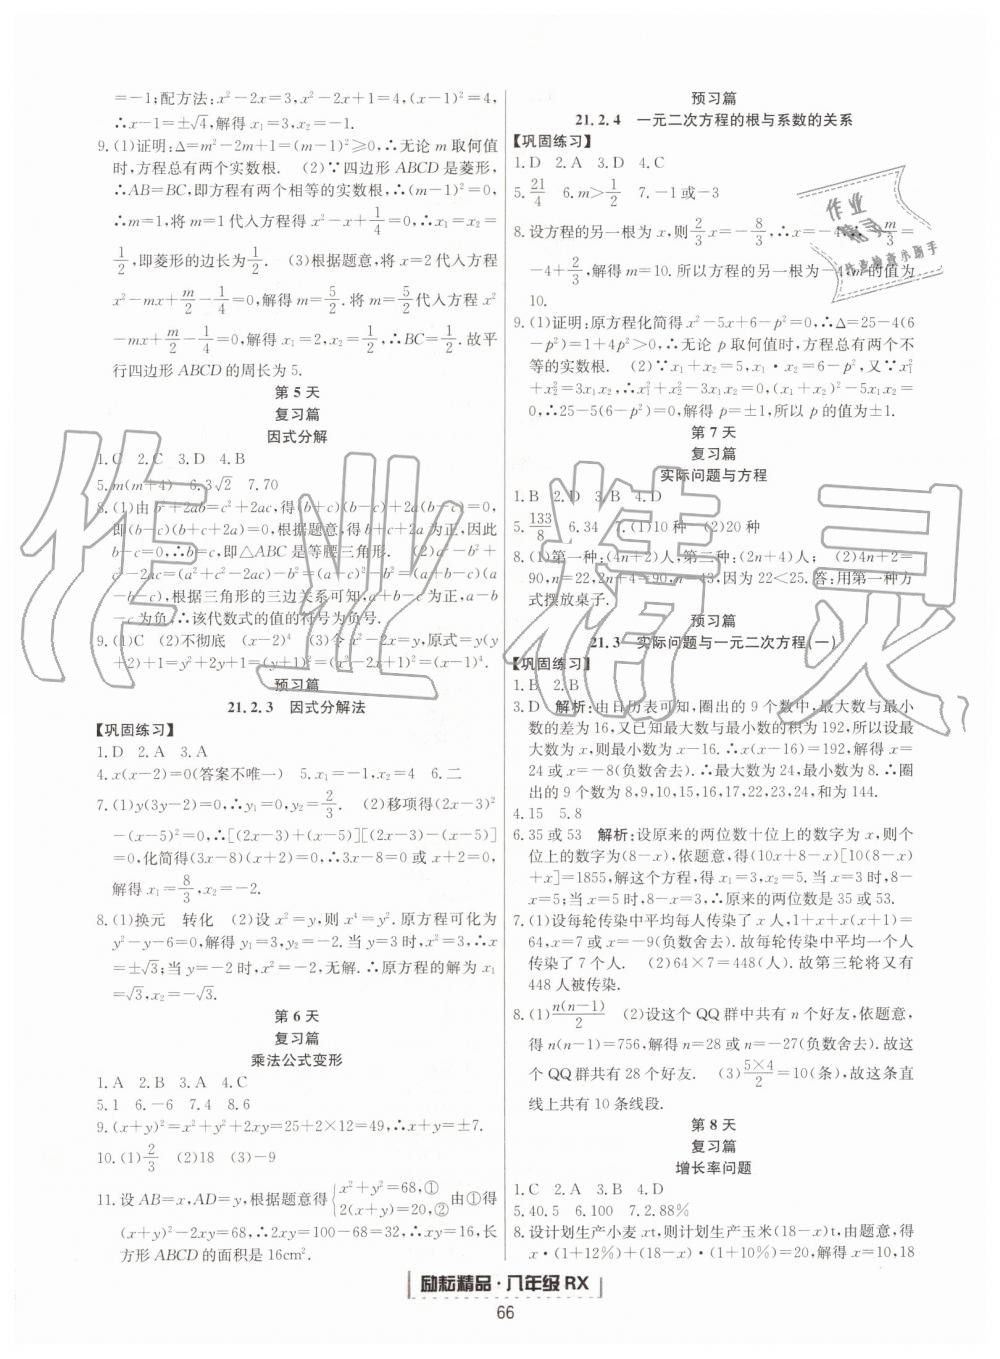 =-1;配方法:x²-2x=3,x²-2x+1=4,(x-1)²=4,
∴x-1=±√4,解得 x₁=3,x₂=-1.
9.(1)证明:Δ=m²-2m+1=(m-1)²≥0,∴无论 m 取何值
时,方程总有两个实数根. (2)∵四边形 ABCD 是菱形,
∴AB=BC,即方程有两个相等的实数根,∴(m-1)²=0,
∴m=1,将 m=1 代入方程得 x²-x+1/4=0,∴x₁=x₂=
1/2,即菱形的边长为1/2. (3)根据题意,将 x=2 代入方程
x²-mx+m/2-1/4=0,解得 m=5/2.将 m=5/2代入方程 x²
-mx+m/2-1/4=0,解得 x₁=2,x₂=1/2.∴BC=1/2.故平
行四边形 ABCD 的周长为 5.
第 5 天
复习篇
因式分解
1.C 2.C 3.D 4.B
5.m(m+4) 6.3√2 7.70
8.(1)由b²+2ab=c²+2ac,得(b+c)(b-c)+2a(b-c)=0,
即(b-c)(b+c+2a)=0,根据题意,得b+c+2a为正,因此
b-c=0,∴b=c,即△ABC 是等腰三角形. (2)a²-b²
+c²-2ac=(a²+c²-2ac)-b²=(a-c)²-b²=(a-c+b)(a
-c-b),根据三角形的三边关系可知,a+b-c为正,a-b
-c为负,∴该代数式的值的符号为负号.
9.(1)C (2)不彻底 (x-2)⁴ (3)令x²-2x=y,原式=y(y
+2)+1=y²+2y+1=(y+1)²=(x²-2x+1)²=(x-1)⁴.
预习篇
21.2.3 因式分解法
【巩固练习】
1.D 2.A 3.A
4.x(x-2)=0(答案不唯一) 5.x₁=-1,x₂=4 6.二
7.(1)y(3y-2)=0,∴y₁=0,y₂=2/3. (2)移项得(2x-3)²
-(x-5)²=0,∴[(2x-3)+(x-5)][(2x-3)-(x-5)]
=0,化简得(3x-8)(x+2)=0,∴3x-8=0 或 x+2=0,
解得 x₁=8/3,x₂=-2.
8.(1)换元 转化 (2)设 x²=y,则 x⁴=y². 原方程可化为
y²-y-6=0,解得 y₁=3,y₂=-2. 当 y=3 时,x²=3,∴x
=±√3;当 y=-2 时,x²=-2,无解.∴原方程的解为 x₁
=√3,x₂=-√3.
第 6 天
复习篇
乘法公式变形
1.A 2.B 3.A 4.A
5.1 6.-6 7.4 8.6
9.(x+y)²=x²+y²+2xy=25+2×12=49,∴x+y=±7.
10.(1)2/3 (2)18 (3)-9
11.设 AB=x,AD=y,根据题意得{x²+y²=68,① 2(x+y)=20,②由①得
(x+y)²-2xy=68,∴2xy=100-68=32,∴xy=16,长
方形 ABCD 的面积是 16cm².
预习篇
21.2.4 一元二次方程的根与系数的关系
【巩固练习】
1.D 2.A 3.D 4.C
5.21/4 6.m>1/2 7.-1 或-3
8.设方程的另一根为 x,则2/3x=-8/3,∴x=-4,∴-m/3=
-4+2/3,解得 m=10.所以方程的另一根为-4,m 的值为
10.
9.(1)证明:原方程化简得 x²-5x+6-p²=0,∴Δ=25-4(6
-p²)=1+4p²>0,∴无论 p 取何值时,方程总有两个不
等的实数根. (2)∵x₁+x₂=5,x₁·x₂=6-p²,又∵x₁²
+x₂²=3x₁x₂,∴x₁²+x₂²-3x₁x₂=0,∴(x₁+x₂)²-5x₁x₂
=0,∴25-5(6-p²)=0,解得 p=±1,所以 p 的值为±1.
第 7 天
复习篇
实际问题与方程
1.B 2.D 3.B 4.D
5.133/8 6.34 7.(1)10 种 (2)20 种
8.(1)第一种:(4n+2)人,第二种:(2n+4)人; (2)4n+2=
90,n=22,2n+4=90,n=43,因为 22<25.答:用第一种方
式摆放桌子.
预习篇
21.3 实际问题与一元二次方程(一)
【巩固练习】
1.B 2.B
3.D 解析:由日历表可知,圈出的 9 个数中,最大数与最小
数的差为 16,又已知最大数与最小数的积为 192,所以设最
大数为 x,则最小数为 x-16.∴x(x-16)=192,解得 x=
24 或 x=-8(负数舍去).∴最大数为 24,最小数为 8.∴圈
出的 9 个数为 8,9,10,15,16,17,22,23,24,和为 144.
4.15 5.8
6.35 或 53 解析:设原来的两位数十位上的数字为 x,则个
位上的数字为(8-x),依题意,得(10x+8-x)[10(8-x)
+x]=1855,解这个方程,得 x₁=3,x₂=5.当 x=3 时,
8-x=5;当 x=5 时,8-x=3,∴原来的两位数是 35 或 53.
7.(1)设每轮传染中平均每人传染了 x 人,1+x+x(x+1)=
64,x=7 或 x=-9(负数舍去).故每轮传染中平均一个人
传染了 7 个人. (2)64×7=448(人).故第三轮将又有
448 人被传染.
8.(1)n(n-1)/2 (2)设这个 QQ 群中共有 n 个好友,依题意,
得 n(n-1)=756,解得 n=28 或 n=-27(负数舍去).故这
个 QQ 群共有 28 个好友. (3)5×4/2=10(条),故这条直
线上共有 10 条线段.
第 8 天
复习篇
增长率问题
1.C 2.A 3.B 4.D
5.40.5 6.100 7.2.88%
8.设计划生产小麦 xt,则计划生产玉米(18-x)t,由题意,得
x·(1+12%)+(18-x)·(1+10%)=20,解得 x=10,18
励耘精品·八年级 RX
66
作业精灵
作业
精灵
作业检查小助手